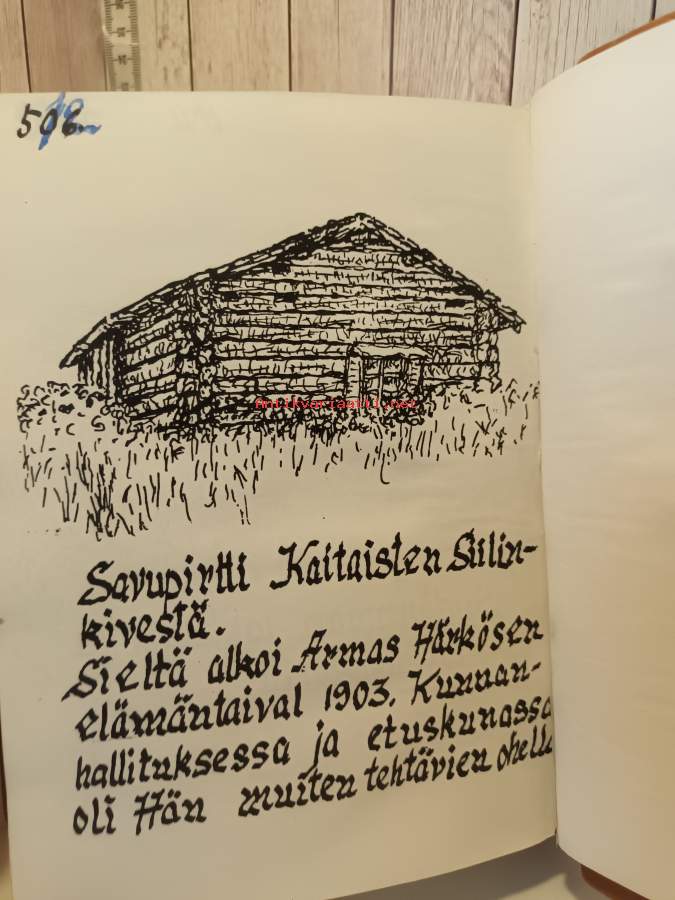 506
Antikvariaatti.net
Savupirtti Kaitaisten Siilin-
kivestä.
Sieltä alkoi Armas Härkösen
elämäntaival 1903. Kunnan-
hallituksessa ja etuskunassa
oli Hän muiten tehtävien ohella